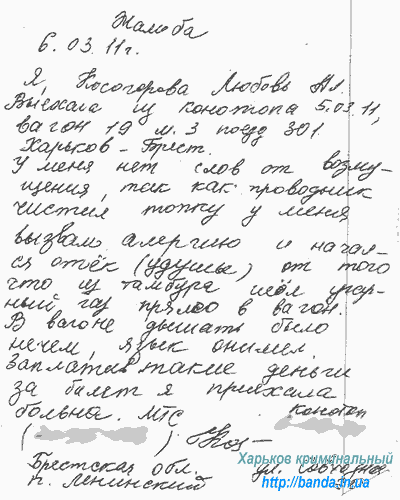 Жалоба
6.03.11г.
Я, Косогорова Любовь Ал.
Выехала из конотопа 5.03.11,
вагон 19 м.3 поезд 301
Харьков - Брест.
У меня нет слов от возму-
щения, так как проводник
чистил топку у меня
вызвал алергию и начал-
ся отёк (удушье) от того
что из тамбура шёл угар-
ный газ прямо в вагон.
В вагоне дышать было
нечем, язык онимел.
Заплатив такие деньги
за билет я приехала
больна. МТС конотоп
( )
Брестская обл. ул.
п. Ленинский
Харьков криминальный
http://banda.in.ua